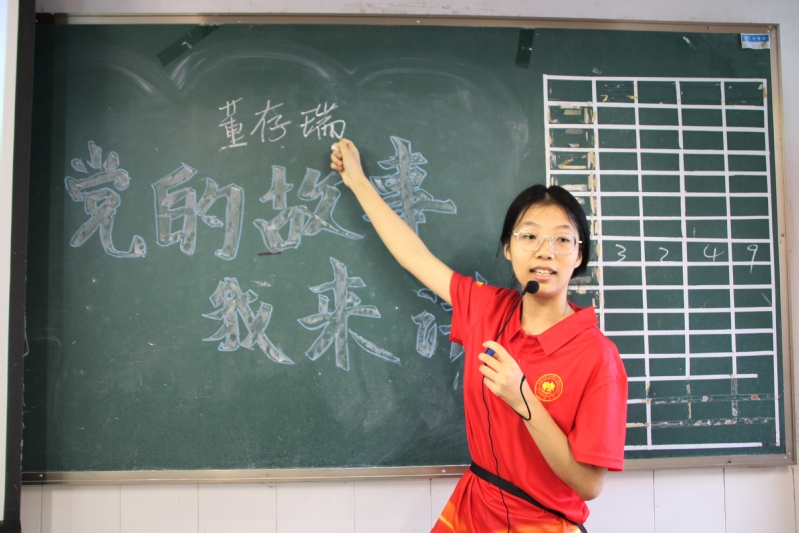 董存瑞
党的故事
我来讲
3 2 4 9